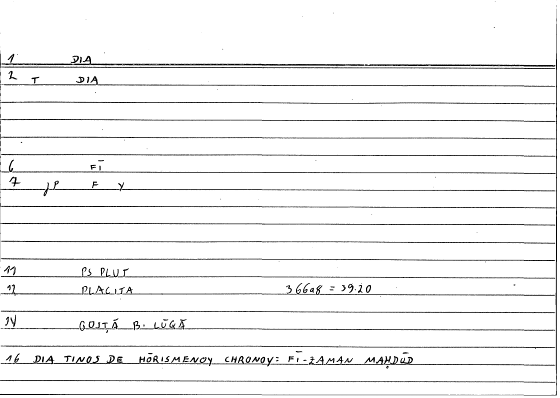 1 DIA
2 T DIA
6 FĪ
7 JP F Y
11 PS PLUT
12 PLACITA 366a8 = 39.20
14 QOSṬĀ B. LŪQĀ
16 DIA TINOS DE HŌRISMENOY CHRONOY: FĪ-ZAMAN MAḤDŪD